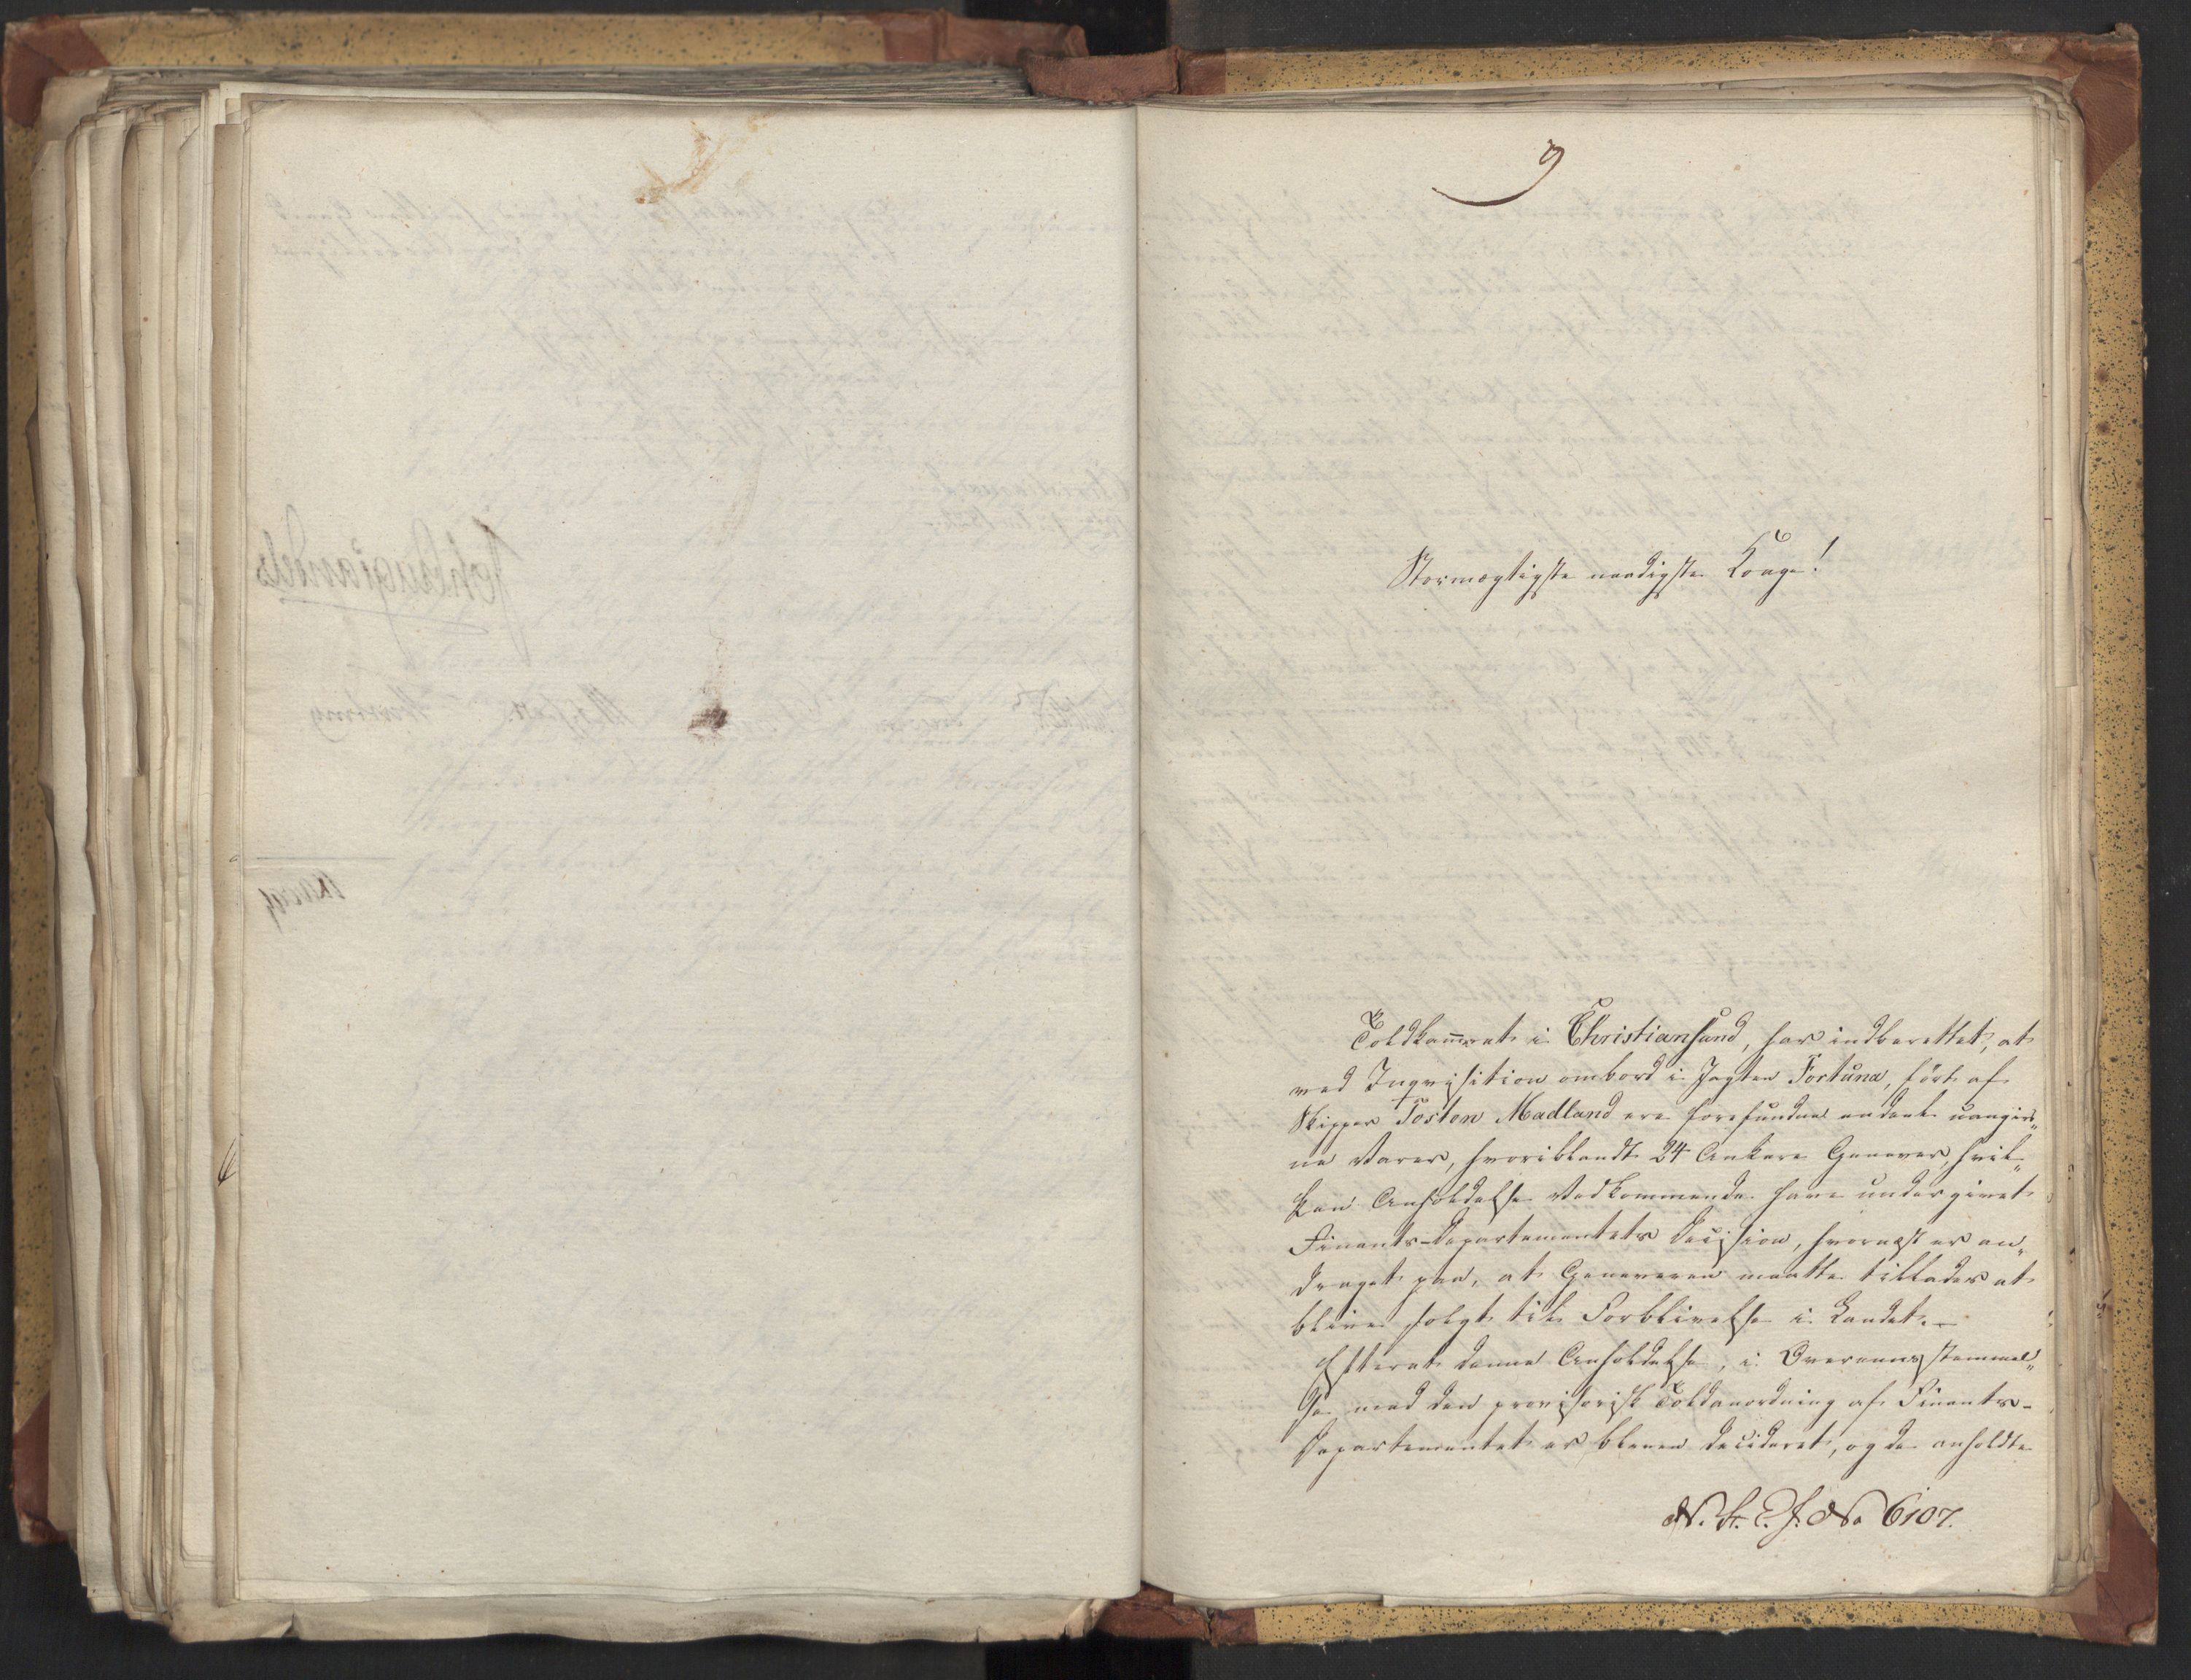 9
Stormægtigste naadigste Konge!
Toldkam̄eret i Christiansund, har indberettet, at
ved Inqvisition ombord i Jagten Fortuna, ført af
Skipper Tosten Madland ere forefundne endeel uangiv„
ne Varer, hvoriblandt 24 Ankere Genever, hvil„
ken Anholdelse Vedkommende have undergivet
Finants-Departementets Decision, hvornæst er an„
draget paa, at Geneveren maatte tillades at
blive solgt til Forblivelse i Landet.-
Efterat denne Anholdelse, i Overeensstemmel„
se med den provisorisk Toldanordning af Finants-
Departementet er bleven decideret, og de anholdte
No 6107.